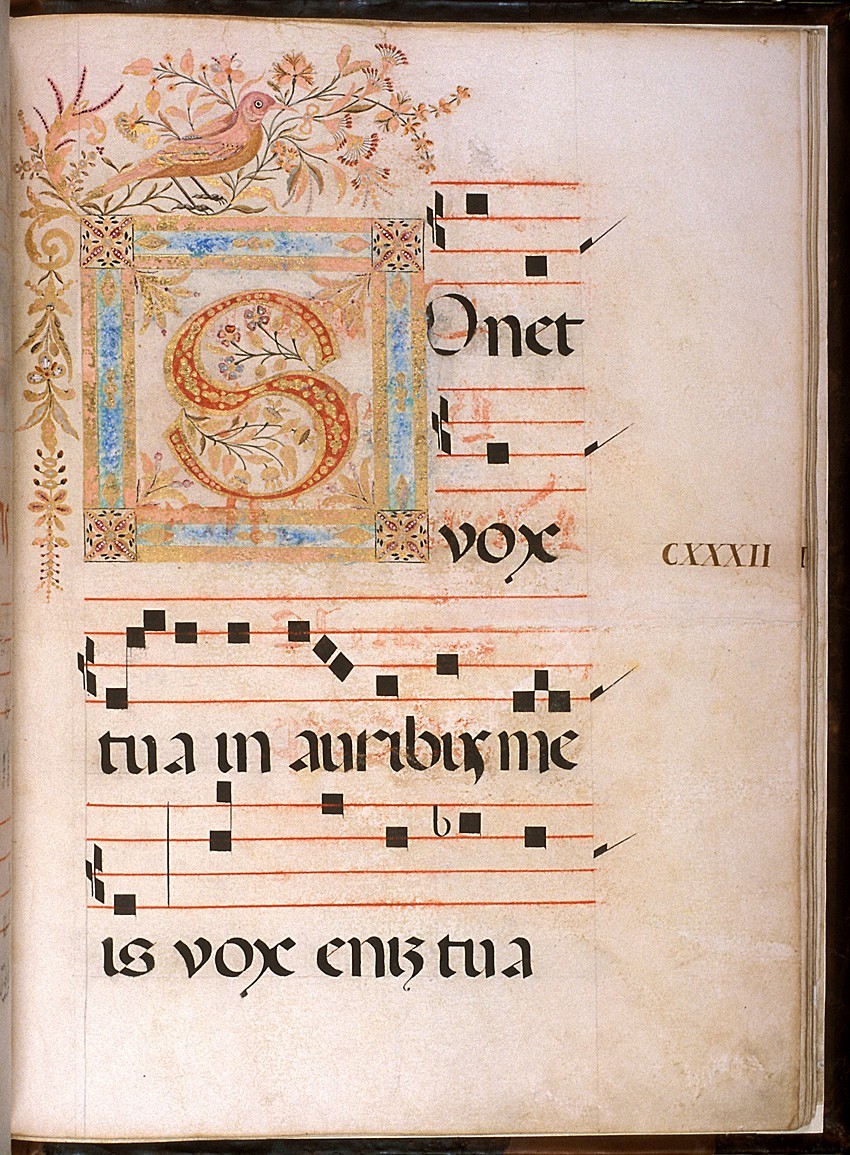 SOnet
vox
CXXXII
tua in auribus me
is vox eniʒ tua